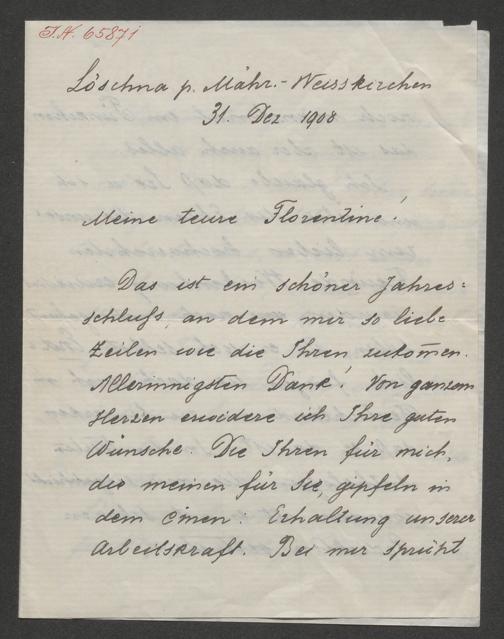 I.N. 65871
Löschna p. Mähr.-Weisskirchen
31. Dez 1908
Meine teure Florentine!
Das ist ein schöner Jahres=
schluß, an dem mir so liebe
Zeilen wie die Ihren zukom̄en.
Allerinnigsten Dank! Von ganzem
Herzen erwidere ich Ihre guten
Wünsche. Die Ihren für mich,
die meinen für Sie, gipfeln in
dem einen: Erhaltung unserer
Arbeitskraft. Bei mir sprüht